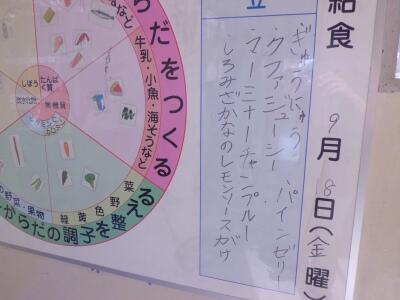 給食
9月8日(金曜
立
・ぎゅうにゅう
・クファジューシー パインゼリー
・マーミナーチャンプルー
・しろみざかなのレモンソースがけ
らだをつくる
牛乳・小魚・海そうなど
など
しぼう
たんぱく質
無機質
の野菜・果物
緑黄色野菜
からだの調子を整
るえ